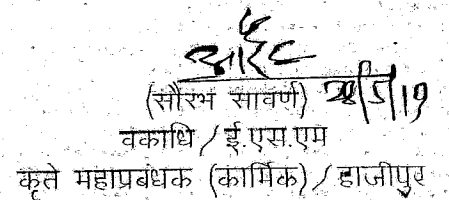 (सौरभ सावर्ण)
वकाधि / ई.एस.एम
कृते महाप्रबंधक (कार्मिक) / हाजीपुर